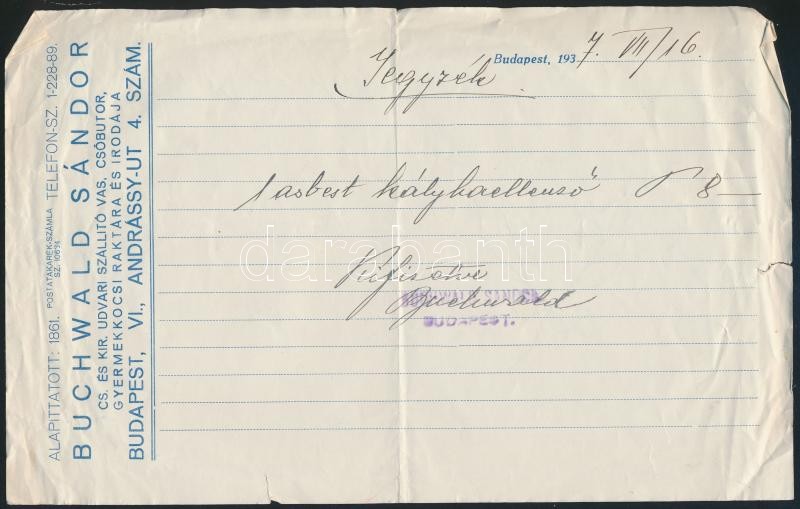 ALAPITTATOTT: 1861. POSTATAKARÉK-SZÁMLA SZ. 10634 TELEFON-SZ. 1-228-89.
BUCHWALD SÁNDOR
CS. ÉS KIR. UDVARI SZÁLLITÓ VAS, CSŐBUTOR,
GYERMEKKOCSI RAKTÁRA ÉS IRODÁJA
BUDAPEST, VI., ANDRÁSSY-UT 4. SZÁM.
Budapest, 1937. VII/16.
Jegyzék
1 asbest kályhaellenző P 8—
darabanth
Kifizetve
Buchwald
BUCHWALD SÁNDOR
BUDAPEST.